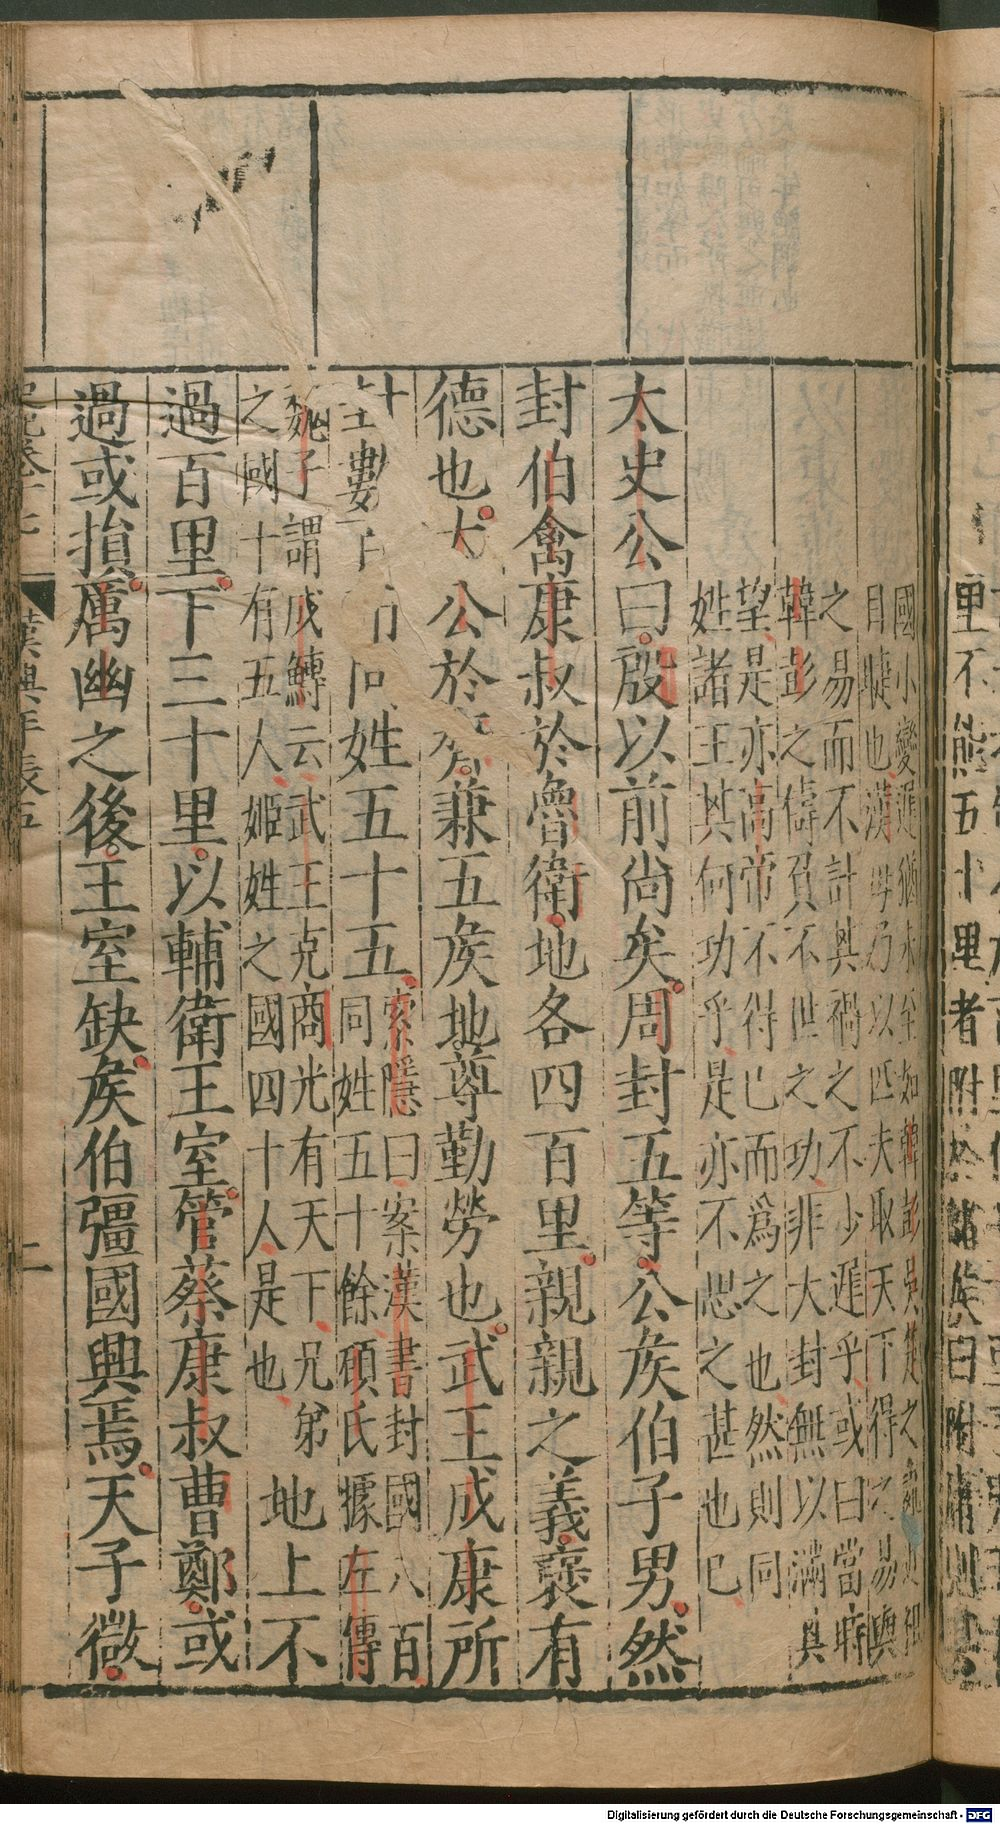 國小變遲猶未至如韓彭吳楚之亂
目睫也漢
乃以匹夫取天下得之易與
之易而不計其禍之不少遲乎或曰當時
韓彭之儔負不世之功非大封無以滿其
望是亦高帝不得已而爲之也然則同
姓諸王其何功乎是亦不思之甚也已
太史公曰殷以前尚矣周封五等公矦伯子男然
封伯禽康叔於魯衛地各四百里親親之義襃有
德也太公於齊兼五矦地尊勤勞也武王成康所
同姓五十五
索隱曰案漢書封國八百
同姓五十餘碩氏據左傳
魏子謂成鱄云武王克商光有天下兄弟
之國十有五人姬姓之國四十人是也
地上不
過百里下三十里以輔衛王室管蔡康叔曹鄭或
過或損厲幽之後王室缺矦伯彊國興焉天子微
漢興年表五
二
里不
五十里者附於諸矦曰附庸則
Digitalisierung gefördert durch die Deutsche Forschungsgemeinschaft - DFG